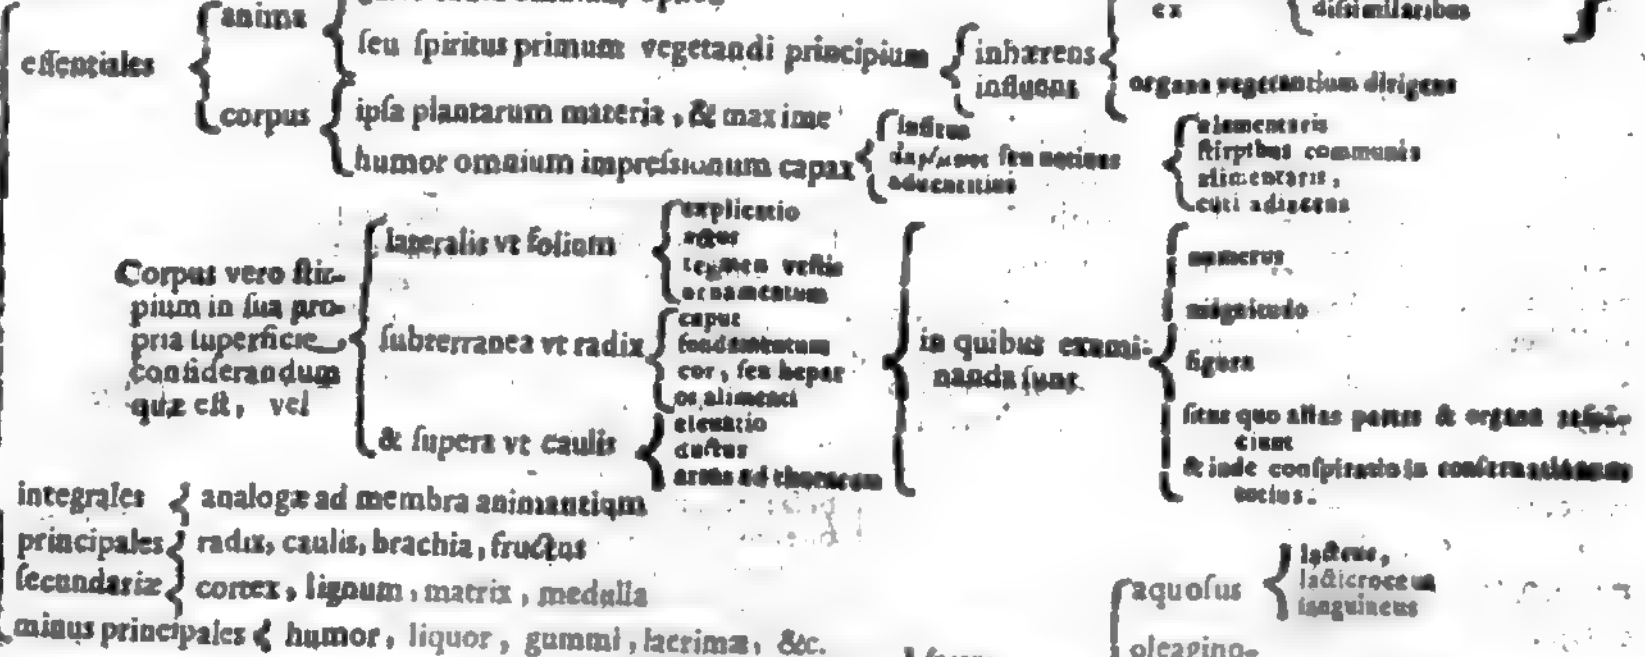 anima
ex
dissimilaribus
essentiales
seu spiritus primum vegetandi principium
inhærens
influens
organa vegetantium dirigens
corpus
ipsa plantarum materia, & maxime
humor omnium impressionum capax
insitus
seu
adventitius
elementaris
stirpibus communis
alimentaris,
cuti adiacens
Corpus vero stir-
pium in sua pro-
pria superficie
considerandum
quæ est, vel
lateralis vt folium
explicatio
tegmen vestis
ornamentum
subterranea vt radix
caput
fundamentum
cor, seu hepar
os alimenti
& supera vt caulis
eleuatio
ductus
ad
in quibus exami-
nanda sunt
numerus
magnitudo
figura
situs quo alias partes & organa
ciunt
& inde conspiratio in
totius.
integrales
analogæ ad membra animantium
principales
radix, caulis, brachia, fructus
secundariæ
cortex, lignum, matrix, medulla
minus principales
humor, liquor, gummi, lacrimæ, &c.
aquosus
lacteus,
lacticroceus
sanguineus
oleagino-